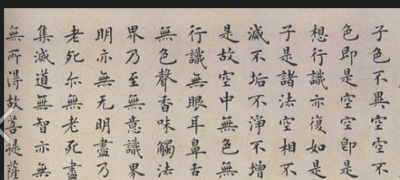 子色不異空空不
色即是空空即是
想行識亦復如是
子是諸法空相不
滅不垢不淨不增
是故空中無色無
行識無眼耳鼻舌
無色聲香味觸法
界乃至無意識界
明亦無无明盡乃
老死亦無老死盡
集滅道無智亦無
無所得故菩提薩